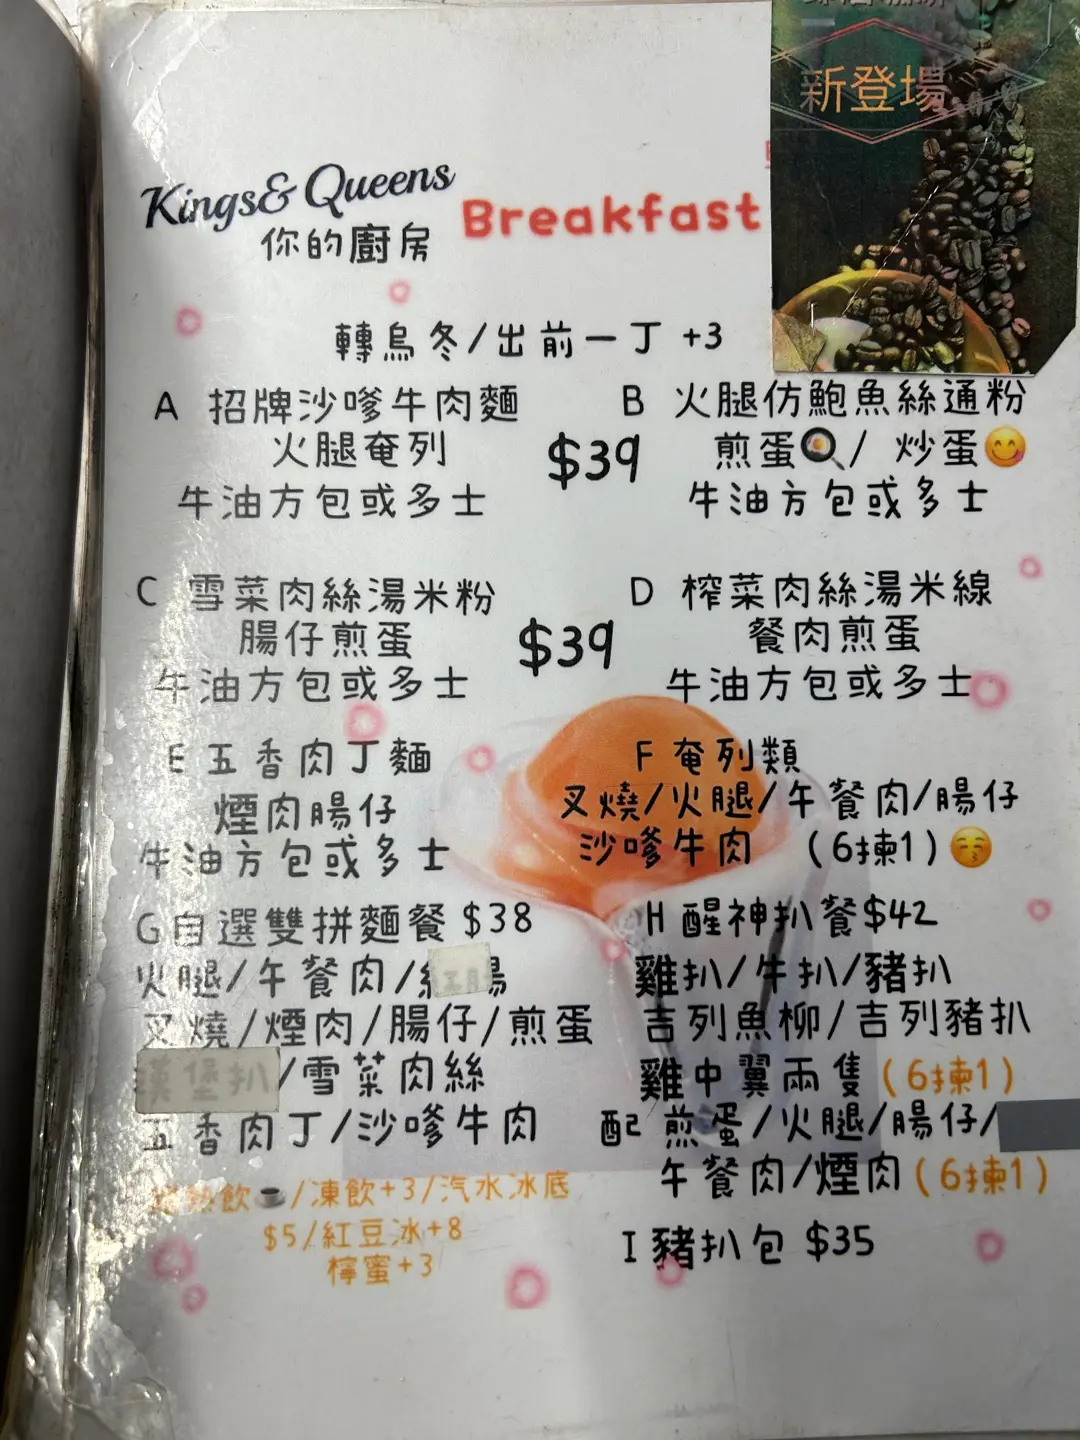 新登場
Kings& Queens
你的廚房
Breakfast
轉烏冬/出前一丁 +3
A 招牌沙嗲牛肉麵
火腿奄列
牛油方包或多士
$39
B 火腿仿鮑魚絲通粉
煎蛋🍳/ 炒蛋😋
牛油方包或多士
C 雪菜肉絲湯米粉
腸仔煎蛋
牛油方包或多士
$39
D 榨菜肉絲湯米線
餐肉煎蛋
牛油方包或多士
E 五香肉丁麵
煙肉腸仔
牛油方包或多士
F 奄列類
叉燒/火腿/午餐肉/腸仔
沙嗲牛肉 (6揀1)😚
G自選雙拼麵餐 $38
火腿/午餐肉/紅腸
叉燒/煙肉/腸仔/煎蛋
漢堡扒/雪菜肉絲
五香肉丁/沙嗲牛肉
熱飲☕/凍飲+3/汽水冰底
$5/紅豆冰+8
檸蜜+3
H 醒神扒餐$42
雞扒/牛扒/豬扒
吉列魚柳/吉列豬扒
雞中翼兩隻(6揀1)
配 煎蛋/火腿/腸仔/
午餐肉/煙肉(6揀1)
I 豬扒包 $35